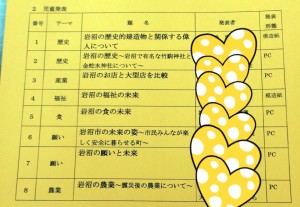 2 児童発表
番号 テーマ 題 名 発表者 発表形態
1 歴史 岩沼の歴史的建造物と関係する偉人について 模造紙
2 歴史 岩沼の歴史~岩沼で有名な竹駒神社と金蛇水神社について~ PC
3 産業 岩沼のお店と大型店を比較 PC
4 福祉 岩沼の福祉の未来 模造紙
5 食 岩沼の食の未来 PC
6 願い 岩沼市の未来の姿~市民みんなが楽しく安全に暮らせる町~ PC
7 願い 岩沼の願いと未来 PC
8 農業 岩沼の農業~震災後の農業について~ PC